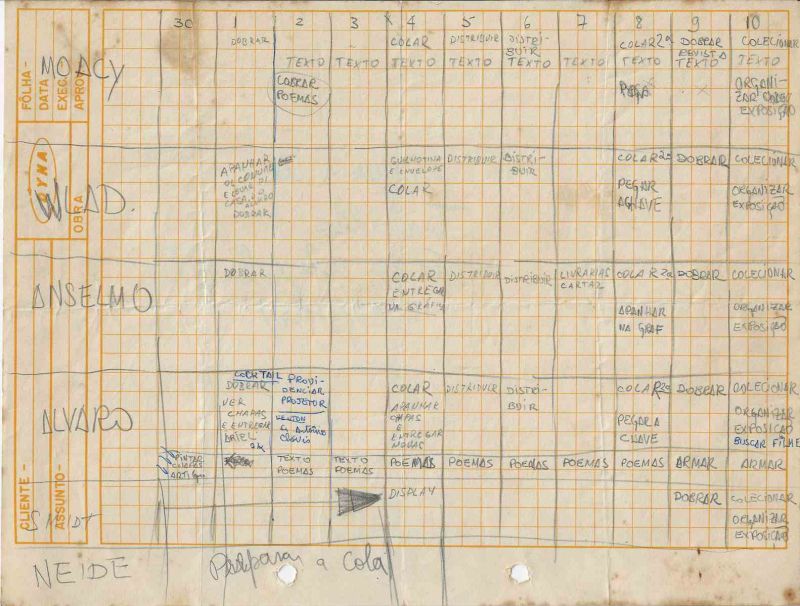 30 1 2 3 4 5 6 7 8 9 10
FÔLHA-
DATA-
EXEC.
APROV.
MOACY
DOBRAR
TEXTO
COBRAR
POEMAS
TEXTO
COLAR
TEXTO
DISTRIBUIR
TEXTO
DISTRI-
BUIR
TEXTO
TEXTO
COLAR 2ª
TEXTO
DOBRAR
REVISTA
TEXTO
COLECIONAR
TEXTO
ORGANI-
ZAR
EXPOSIÇÃO
DYNA
OBRA
WLAD.
APANHAR
DOBRAR
GUILHOTINA
E ENVELOPE
COLAR
DISTRIBUIR
DISTRI-
BUIR
COLAR 2ª
PEGAR
A CHAVE
DOBRAR
COLECIONAR
ORGANIZAR
EXPOSIÇÃO
ANSELMO
DOBRAR
COLAR
ENTREGAR
NA GRÁFICA
DISTRIBUIR
DISTRIBUIR
LIVRARIAS
CARTAZ
COLAR 2ª
APANHAR
NA GRAF
DOBRAR
COLECIONAR
ORGANIZAR
EXPOSIÇÃO
ALVARO
COCKTAIL
DOBRAR
VER
CHAPAS
E ENTREGAR
PROVI-
DENCIAR
PROJETOR
COLAR
APANHAR
CHAPAS
E
ENTREGAR
NOVAS
DISTRIBUIR
DISTRI-
BUIR
COLAR 2ª
PEGAR A
CHAVE
DOBRAR
COLECIONAR
ORGANIZAR
EXPOSIÇÃO
BUSCAR FILME
PINTAR
TEXTO
POEMAS
TEXTO
POEMAS
POEMAS
POEMAS
POEMAS
POEMAS
POEMAS
ARMAR
ARMAR
CLIENTE-
ASSUNTO-
DISPLAY
DOBRAR
COLECIONAR
ORGANIZAR
EXPOSIÇÃO
NEIDE
Preparar a Cola